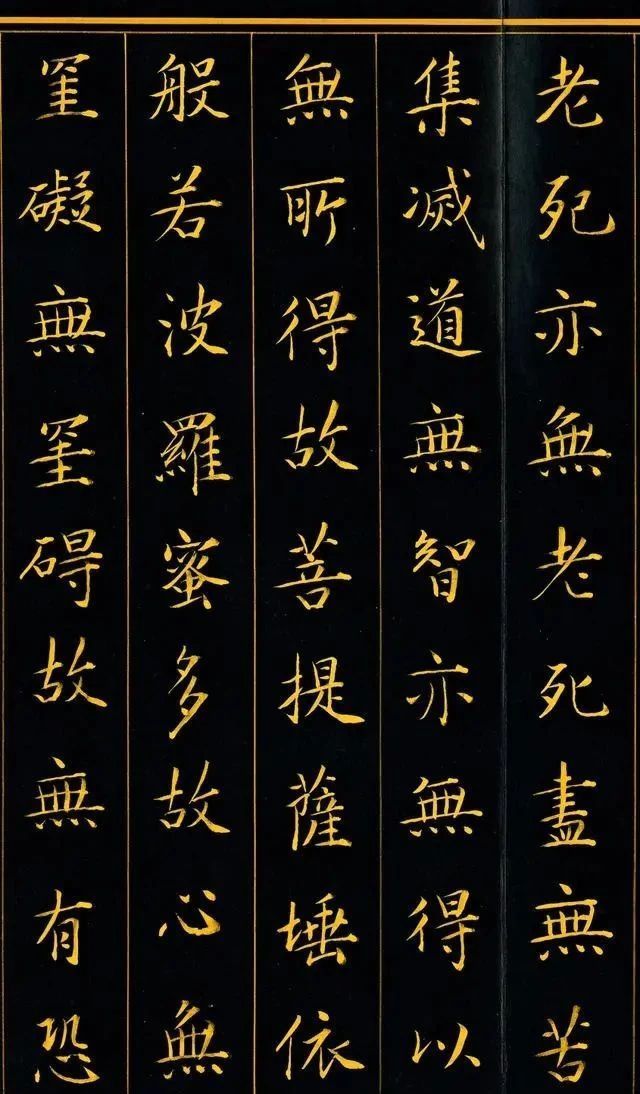 老死亦無老死盡無苦
集滅道無智亦無得以
無所得故菩提薩埵依
般若波羅蜜多故心無
罣礙無罣碍故無有恐